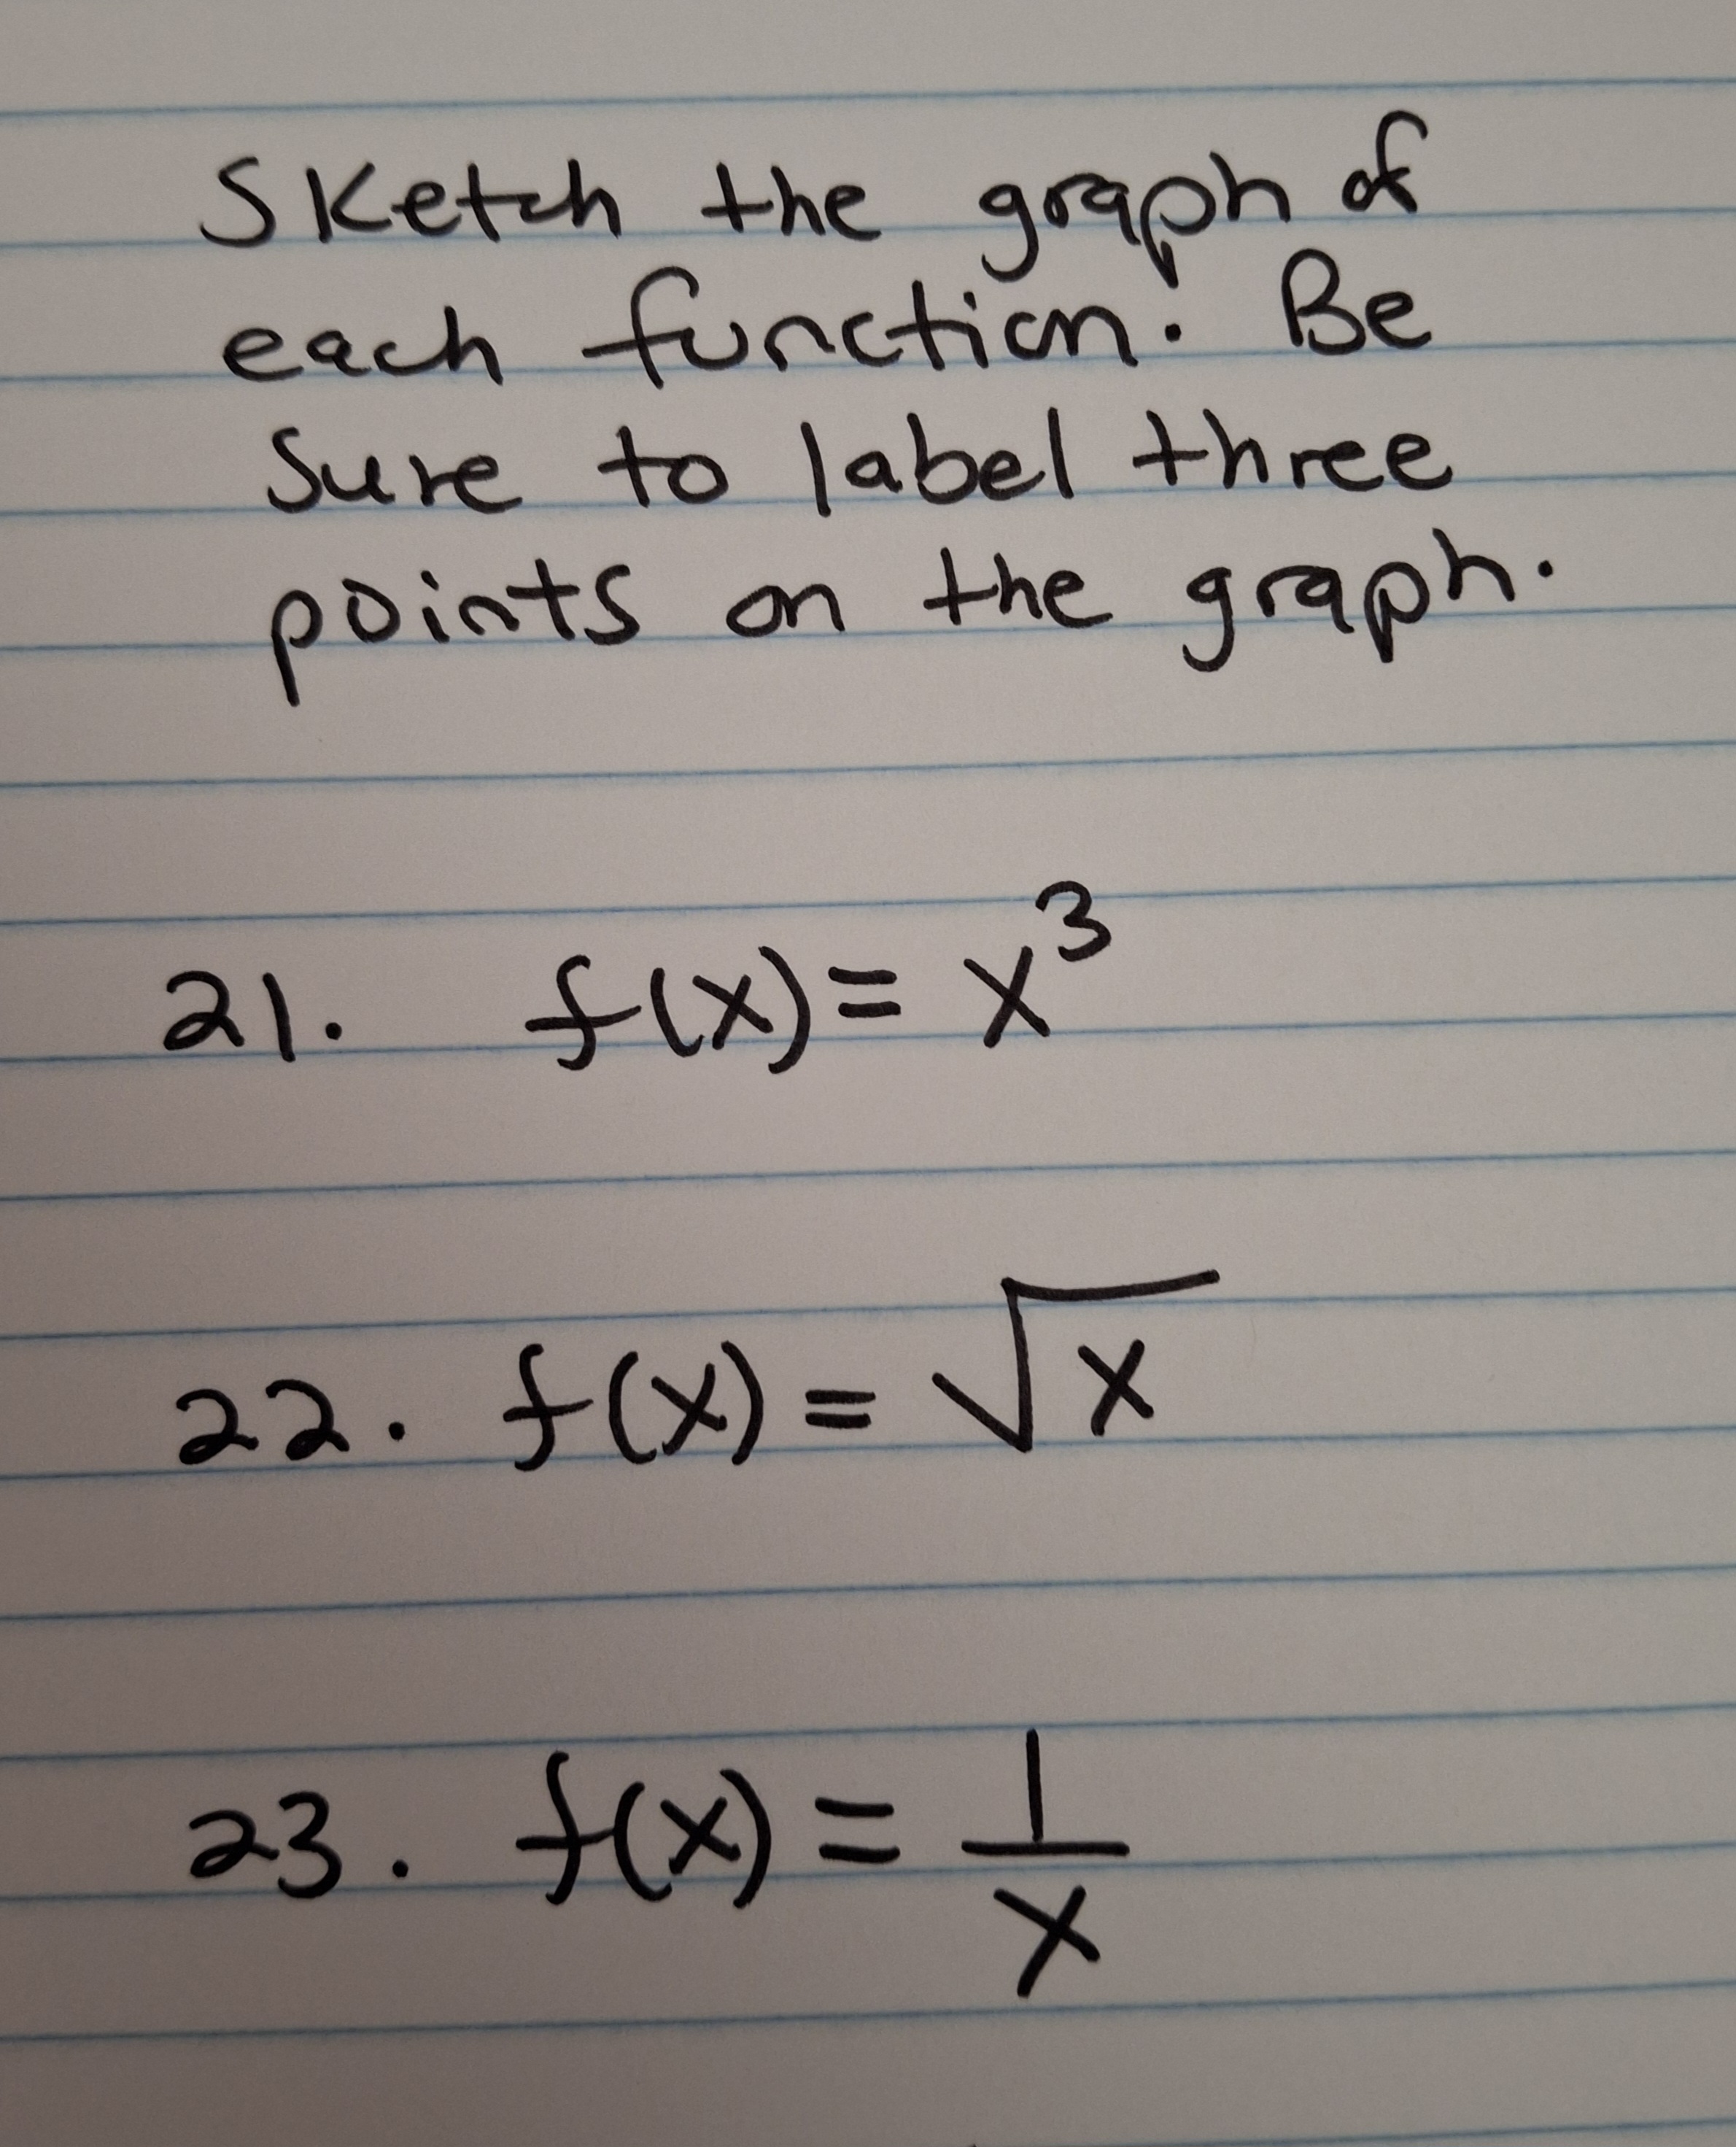 Sketch the graph of
each function. Be
sure to label three
points on the graph.
21. f(x) = x³
22. f(x) = √x
23. f(x) = 1/x